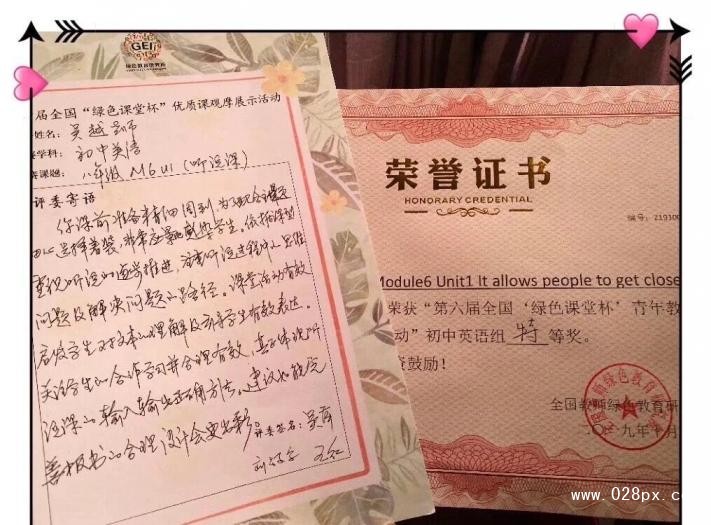 GEI
绿色教育研究院
届全国“绿色课堂杯”优质课观摩展示活动
姓名：吴越
学科：初中英语
课题：八年级 M6U1（听说课）
评委寄语
你课前准备精细周到，为了配合课题
重视听说的逐步推进，注意听说过程中
问题及解决问题的路径。课堂活动有效
启发学生对文本的理解及引导学生有效表达。
关注学生的合作学习并合理有效，真正体现听
说课的输入输出正确方法。建议如能完
善板书的合理设计会更出彩。
评委签名：
荣誉证书
HONORARY CREDENTIAL
编号：219100
Module6 Unit1 It allows people to get close
荣获“第六届全国‘绿色课堂杯’青年教
动”初中英语组 特 等奖。
鼓励！
全国教师绿色教育研
二〇一九年十月
www.028px.c